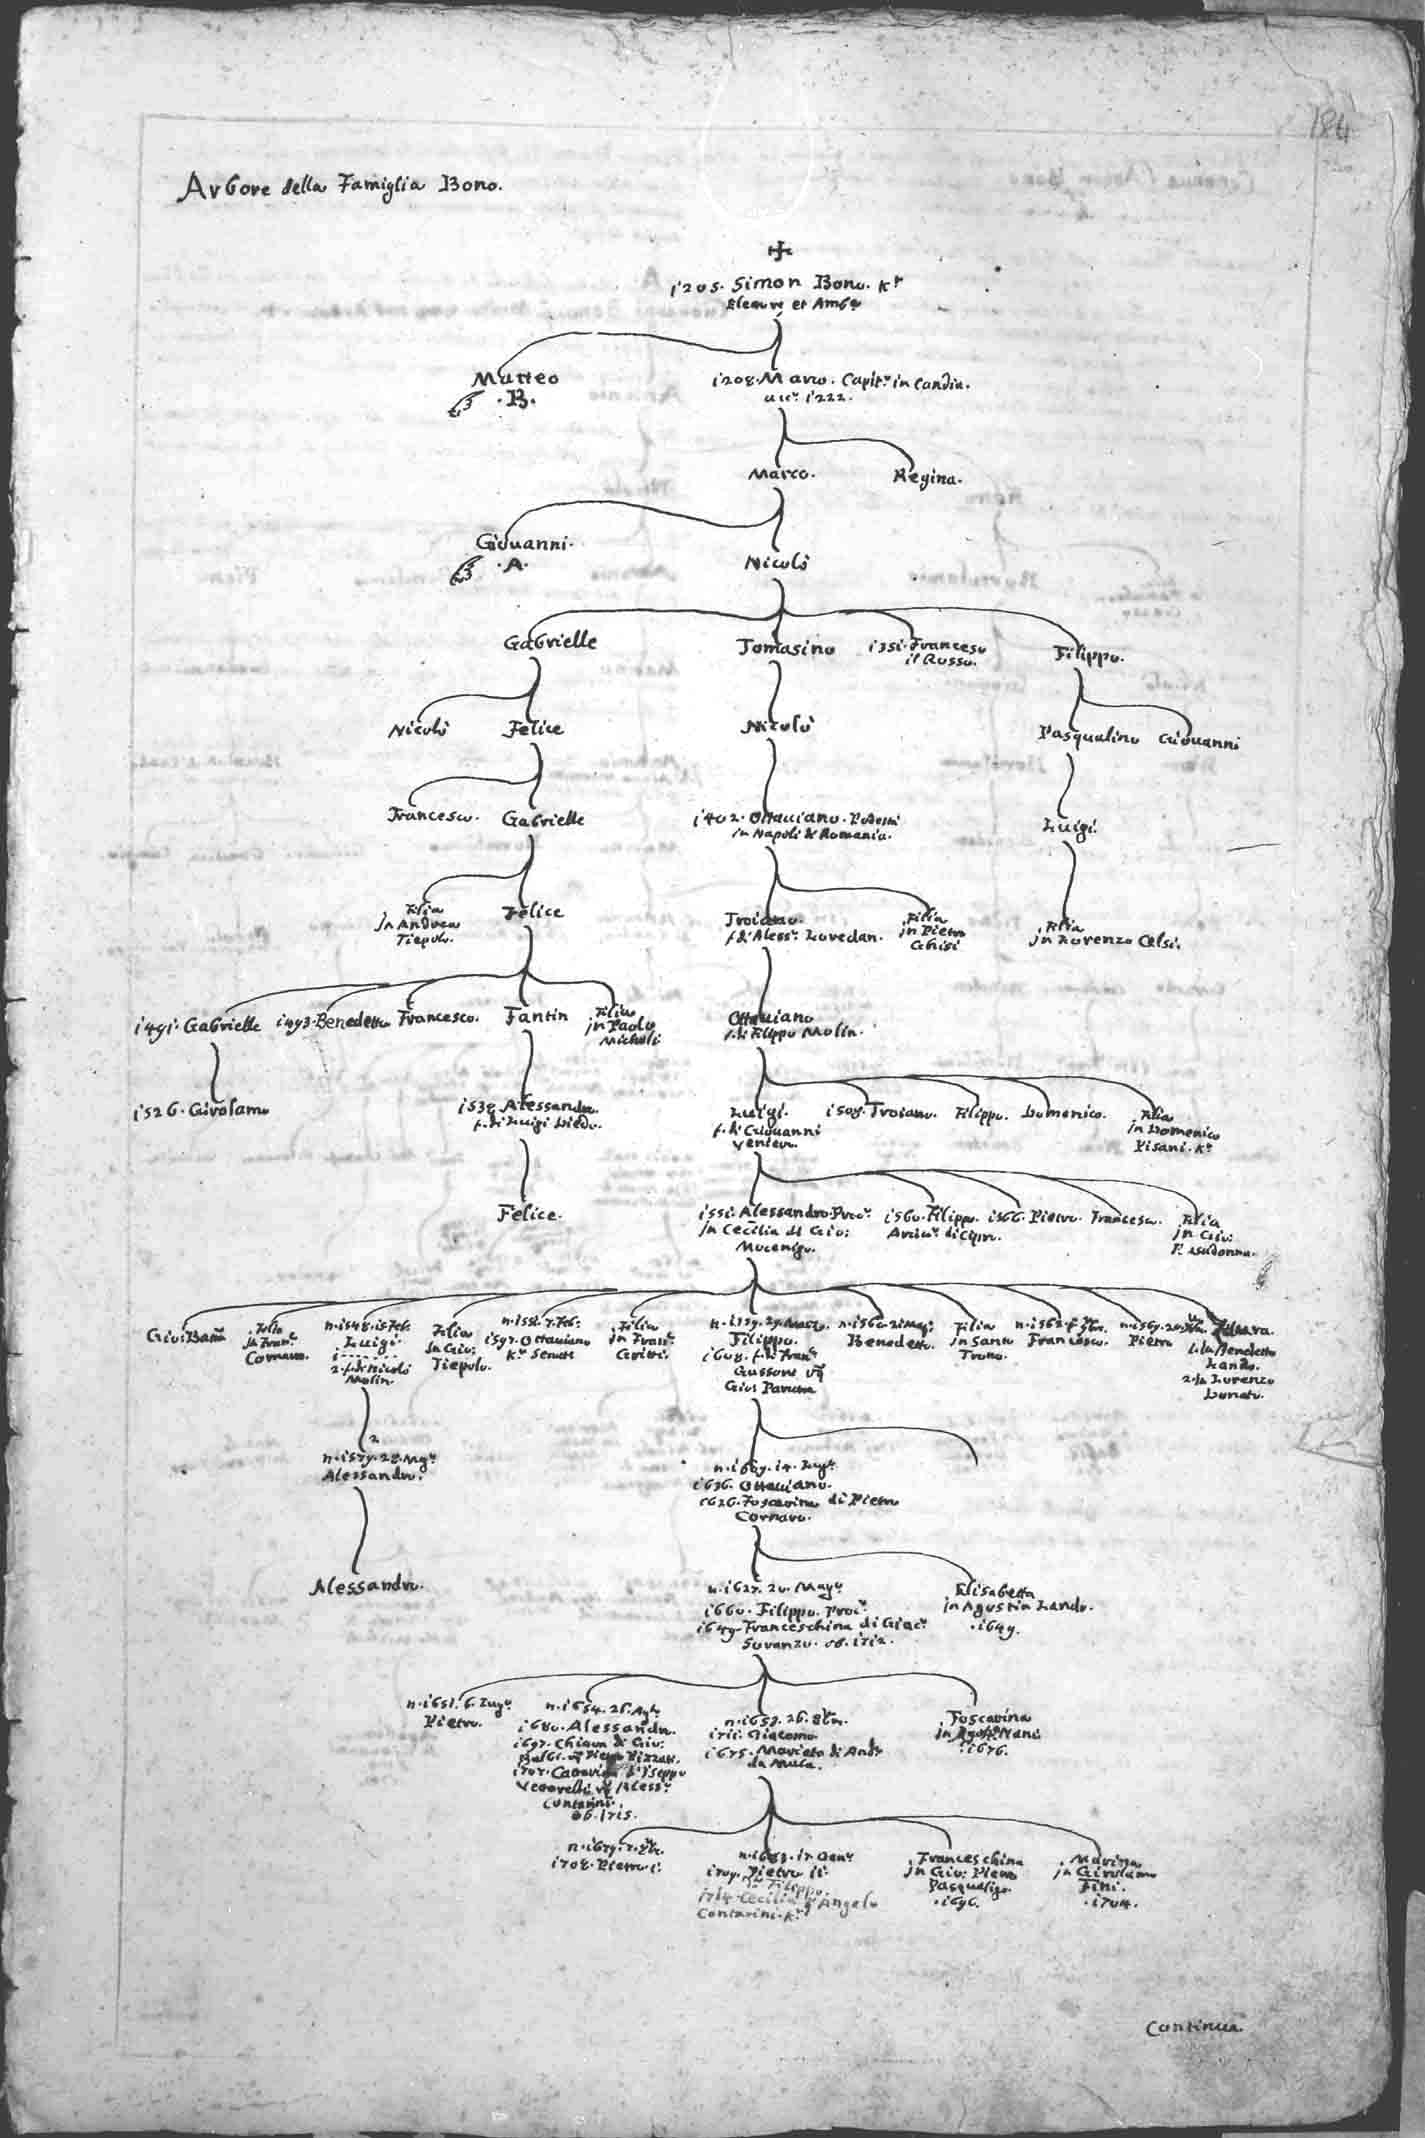 184
Arbore della Famiglia Bono.
1205. Simon Bono. Kr
et Ambr
Matteo
.B.
1208. Marco. Capitº in Candia.
1222.
Marco.
Regina.
Giovanni.
.A.
Nicolò
Gabrielle
Tomasino
1351. Francesco
il Rosso.
Filippo.
Nicolò
Felice
Nicolò
Pasqualino
Giovanni
Francesco.
Gabrielle
1402. Ottaviano. Podestà
in Napoli di Romania.
Luigi.
Filia
in Andrea
Tiepolo.
Felice
Troiano.
f. di Alessº Loredan.
Filia
in Pietro
Ghisi
Filia
in Lorenzo Celsi.
1491. Gabrielle
1493. Benedetto
Francesco.
Fantin
Filia
in Paolo
Michiel
Ottaviano
f. di Filippo Molin.
1526. Girolamo
1538 Alessandro.
f. di Luigi Diedo.
Luigi.
f. di Giovanni
Venier.
1508. Troiano.
Filippo.
Domenico.
Filia
in Domenico
Pisani. Kr
Felice.
1551. Alessandro. Procr
in Cecilia di Gio:
Mocenigo.
1560. Filippo.
di Cipro.
1566. Pietro.
Francesco.
Filia
in Gio:
Gio: Batta
Filia
in Franco
Cornaro.
n. 1548. 15 Feb.
Luigi.
1.
2. f. di Nicolò
Molin.
Filia
in Gio:
Tiepolo.
n. 1551. 7. Feb:
1597. Ottaviano
Kr Senatr
Filia
in Franco
Gritti.
n. 1559. 29. Marzo.
Filippo.
1608. f. di Franco
Gussoni
Gio: Paruta
n. 1560. 21 Magº
Benedetto.
Filia
in Santo
Trono.
n. 1562.
Francesco.
Pietro
1. in Benedetto
Lando.
2. in Lorenzo
Donato.
2
n. 1579. 28. Mago
Alessandro.
n. 1609. 14. Lugo
1636. Ottaviano.
1626. Foscarina di Pietro
Cornaro.
Alessandro.
n. 1627. 20. Mago
1660. Filippo. Procr
1649. Franceschina di Giaco
Soranzo. ob. 1712.
Elisabetta
in Agustin Lando.
.1649.
n. 1651. 6. Lugo
Pietro.
n. 1654. 26. Ago
1680. Alessandro.
1697. Chiara di Gio:
Balbi. vª Pietro Pizzati.
1707. Cattarina d'Iseppo
vª Alesso
Contarini.
ob. 1715.
n. 1659. 26. 8bre.
1711. Giacomo
1675. Marieta di Andr
da Mula.
Foscarina
in Agosto Nani
.1676.
n. 1679. 7. 8bre.
1708. Pietro 1º
n. 1683. 17. Genr
1709. Pietro 2º
Filippo.
1714. Cecilia d'Angelo
Contarini. Kr
Franceschina
in Gio: Piero
Pasqualigo.
.1696.
Marina
in Girolamo
Fini.
.1704.
Continua.